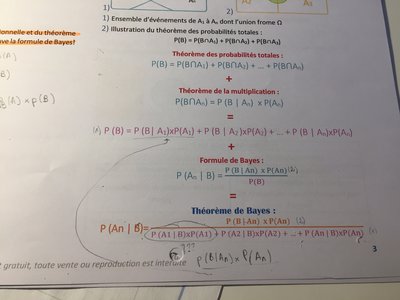 1)
A₁
2)
A₂
A₃
1) Ensemble d'événements de A₁ à Aₙ dont l'union frome Ω
2) Illustration du théorème des probabilités totales :
P(B) = P(B∩A₁) + P(B∩A₂) + P(B∩A₃)
ionnelle et du théorème
ve la formule de Bayes?
(A)
B)
(A) x p(B)
Théorème des probabilités totales :
P(B) = P(B∩A₁) + P(B∩A₂) + ... + P(B∩Aₙ)
+
Théorème de la multiplication :
P(B∩Aₙ) = P(B | Aₙ) x P(Aₙ)
=
(1) P (B) = P(B | A₁)xP(A₁) + P(B | A₂)xP(A₂) + ... + P(B | Aₙ)xP(Aₙ)
+
Formule de Bayes :
P (Aₙ | B) = P (B | An) x P(An) (2)
P(B)
=
Théorème de Bayes :
P (An | B) = P (B | An) x P(An) (2)
P (A1 | B)xP(A1) + P(A2 | B)xP(A2) + ... + P(An | B)xP(An) (1)
???
P(B|An) x P(An)
3
t gratuit, toute vente ou reproduction est interdite